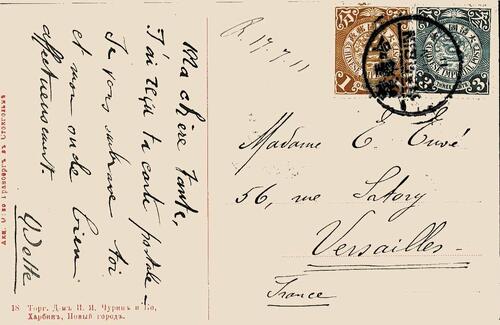 R 17.7.11
Ma chère Tante,
J'ai reçu ta carte postale -
Je vous embrasse toi
et mon oncle bien
affectueusement.
Odette
Madame E. Cuvé
56, rue Satory
Versailles-
France
1
3
18 Торг. Д-мъ И. Я. Чуринъ и Ко,
Харбинъ, Новый городъ.